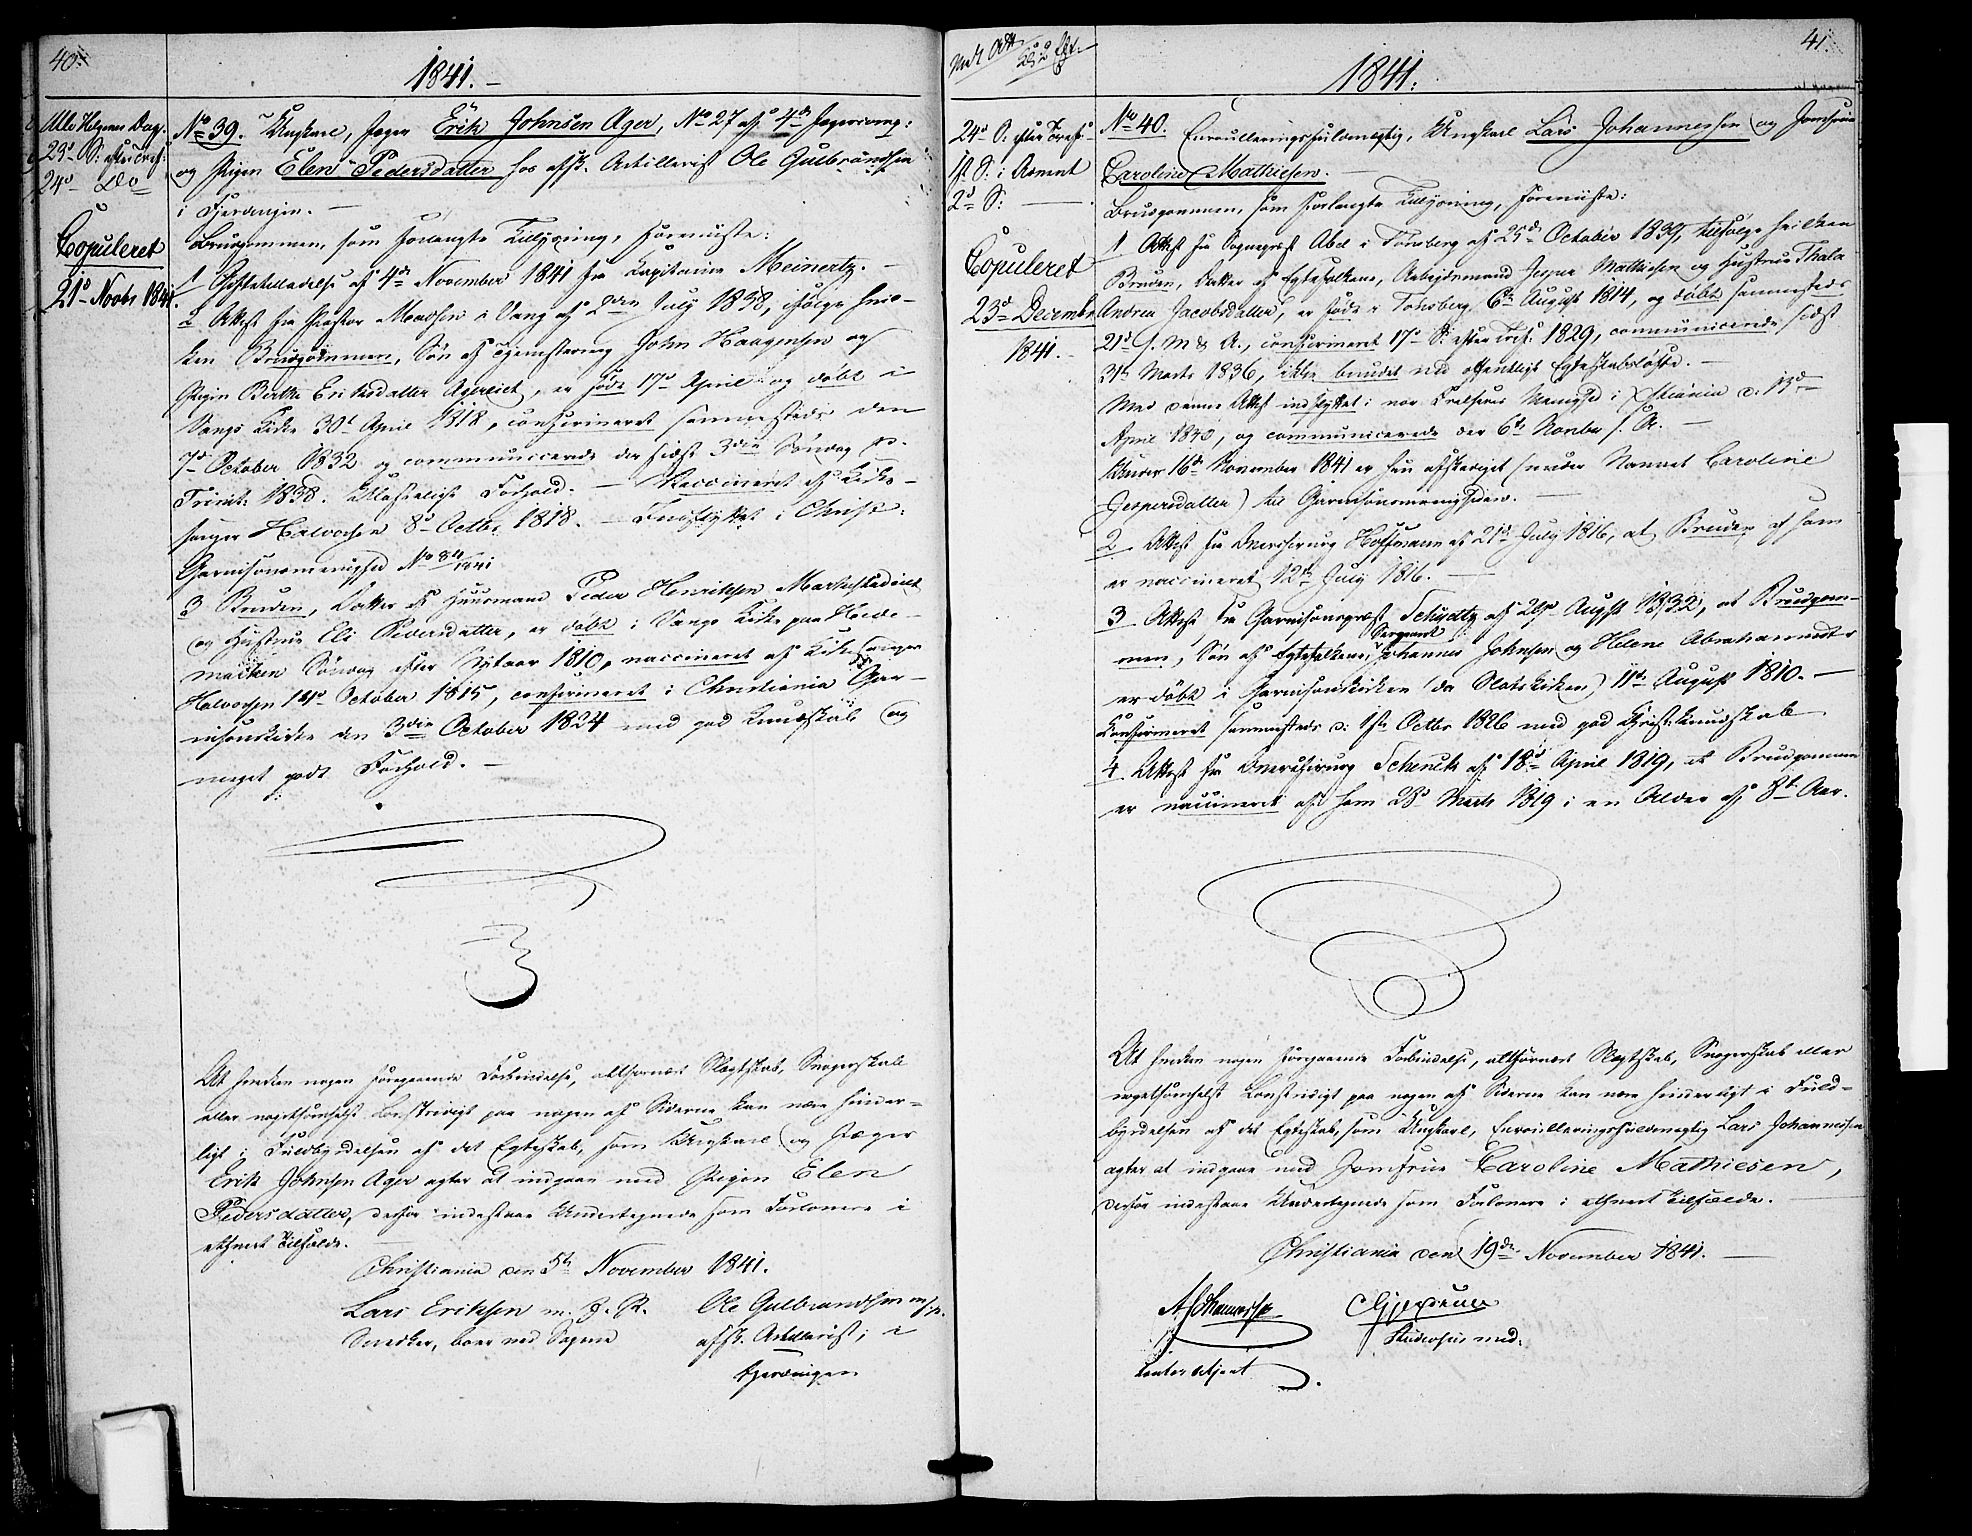 40.
1841.
Alle Helgenes Dag.
23d S: efter Tref:
24d Do
Copuleret
21d Novbr 1841.
No 39. Ungkarl, Jæger Erik Johnsen Ager, No 27 af 4de
og Pigen Elen Pedersdatter hos afsk. Artillerist Ole Gulbrandsen
i Fjerdingen.
Brudgommen, som forlangte Tillysning, foreviiste:
1 Giftetilladelse af 4de November 1841 fra Kapitaine Meinertz.
2 Attest fra Pastor i Vang af 2den July 1838, ifølge hvil-
ken Brudgommen, Søn af John Haagensen og
Pigen Berthe Eriksdatter Agereiet, er føde 17de April og døbt i
Vangs Kirke 30d April 1818, confirmeret sammesteds den
7d October 1832 og communicerede der sidst 3die Søndag p.
Trinit. 1838. Forhold. Vaccineret af Kirke-
sanger Halvorsen 8d Octbr 1818. Indflyttet i Christ:
Garnisonsmenighed No 1841
3 Bruden, Datter af Huusmand Peder Henriksen
og Hustrue Eli Pedersdatter, er døbt i Vangs Kirke paa Hede-
marken Søndag efter Nytaar 1810, vaccineret af Kirkesanger
Halvorsen October 1815, confirmeret i Christiania Gar-
nisonskirke den 3die October 1824 med god Kundskab og
meget godt Forhold.
At hverken nogen foregaaende Forbindelse, altfornært Slægtskab, Svogerskab
eller nogetsomhelst Lovstridigt paa nogen af Siderne kan være hinder-
ligt i Fuldbyrdelsen af det Egteskab, som Ungkarl og Jæger
Erik Johnsen Ager agter at indgaae med Pigen Elen
Pedersdatter, derfor indestaae Undertegnede som Forlovere i
ethvert Tilfælde.
Christiania den 5te November 1841.
Lars Eriksen m. F. P. Ole Gulbrandsen m/p.
Snedker, boer ved Sagene afsk. Artillerist, i
Fjerdingen
41.
1841.
24d S. efter Tref:
1st S. i Advent
2d S:
Copuleret
23d December
1841.
No 40. Enroulleringsfuldmægtig, Ungkarl Lars Johannessen og Jomfrue
Caroline Mathiesen.
Brudgommen, som forlangte Tillysning, foreviiste:
1 Attest fra Sognepræst Abel i Tönsberg af 25d October 1839, ifølge hvilken
Bruden, Datter af Egtefolkene, Arbeidsmand Jesper Mathiesen og Hustrue Thala
Andrea Jacobsdatter, er føde i Tönsberg 6te August 1814, og døbt sammesteds
21d s. M & A., confirmeret 17d S. efter Tref: 1829, communicerede sidst
31t Marts 1836, ikke bundet ved offentligt Egteskabsløfte.
Med denne Attest indflyttet i vor Frelsers Menighed i Xstiania d. 13d
April 1840, og communicerede der 6te Novbr s. A.
Under 16d November 1841 er hun afskediget (under Navnet Caroline
Jespersdatter) til Garnisonsmenigheden.
2 Attest fra Overchirurg Hoffmann af 21d July 1816, at Bruden af ham
er vaccineret 12te July 1816.
3 Attest fra Garnisonspræst Schydtz af August 1832, at Brudgom-
men, Søn af Egtefolkene, Sergeant Johannes Johnsen og Helene Abrahamsdtr
er døbt i Garnisonskirken (da Slotskirken) 11te August 1810.
Confirmeret sammesteds d. 1ste Octbr 1826 med god Christ. Kundskab
4 Attest fra Overchirurg Schenck af 18d April 1819, at Brudgommen
er vaccineret af ham 28d Marts 1819 i en Alder af 8t Aar.
At hverken nogen foregaaende Forbindelse, altfornært Slægtskab, Svogerskab eller
nogetsomhelst Lovstridigt paa nogen af Siderne kan være hinderligt i Fuld-
byrdelsen af det Egteskab, som Ungkarl, Enroulleringsfuldmægtig Lars Johannessen
agter at indgaae med Jomfrue Caroline Mathiesen,
derfor indestaae Undertegnede som Forlovere i ethvert Tilfælde.
Christiania den 19de November 1841.
A Johannesse
Studiosus med.